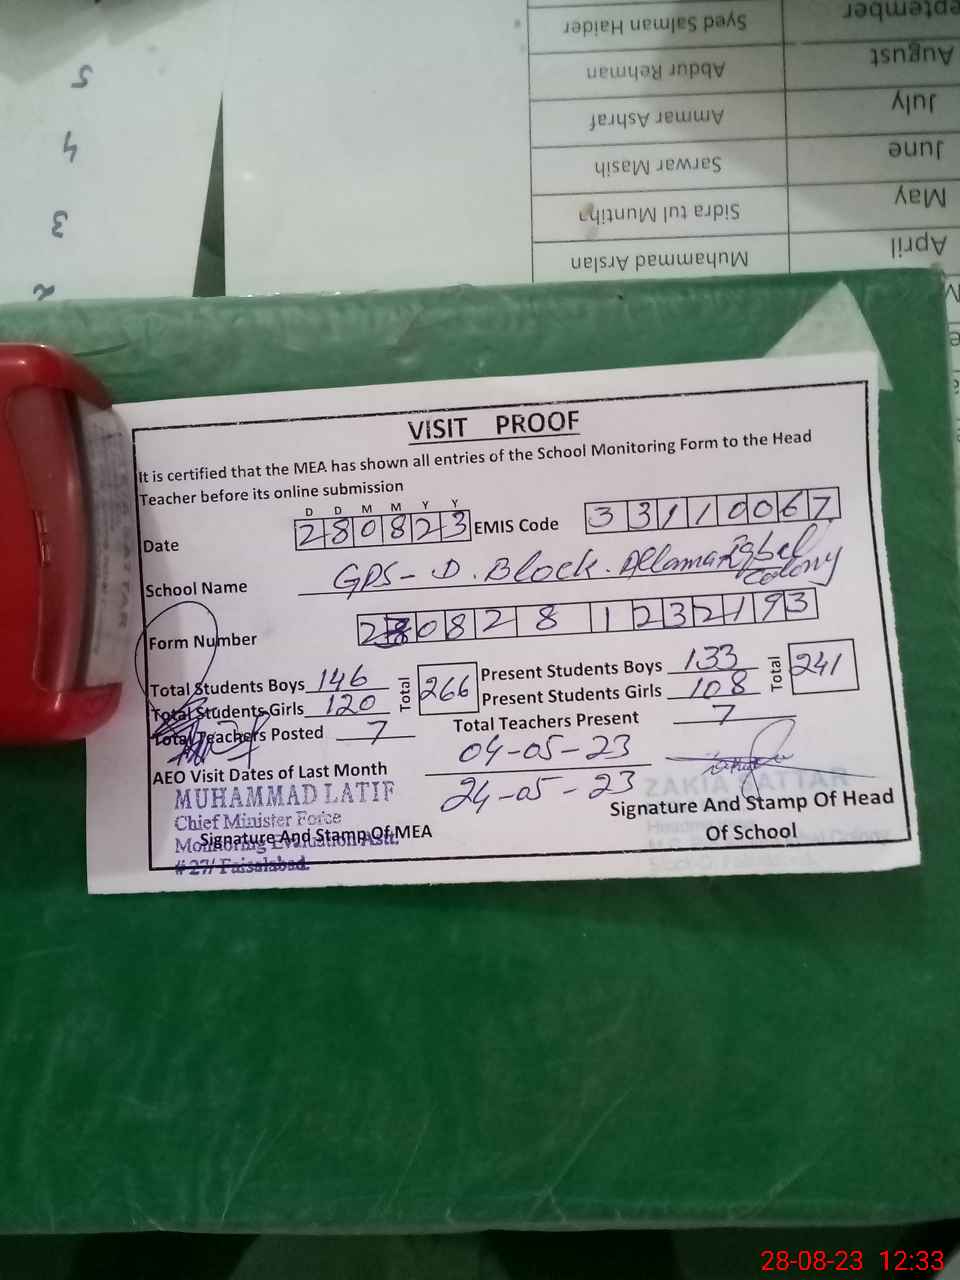 September
Syed Salman Haider
August
Abdur Rehman
July
Ammar Ashraf
June
Sarwar Masih
May
Sidra tul
April
Muhammad Arslan
5
4
3
2
VISIT PROOF
It is certified that the MEA has shown all entries of the School Monitoring Form to the Head
Teacher before its online submission
D D M M Y Y
Date 280823 EMIS Code 33110067
School Name GPS-D.Block.Allama Iqbal
Colony
Form Number 2808281232193
Total Students Boys 146 Total 266 Present Students Boys 133 Total 241
Total Students Girls 120 Present Students Girls 108
Total Teachers Posted 7 Total Teachers Present 7
AEO Visit Dates of Last Month 04-05-23
24-05-23
MUHAMMAD LATIF
Chief Minister Force
Monitoring Evaluation Astt.
# 27/ Faisalabad.
Signature And Stamp Of MEA
ZAKIA SATTAR
Signature And Stamp Of Head
Of School
28-08-23 12:33